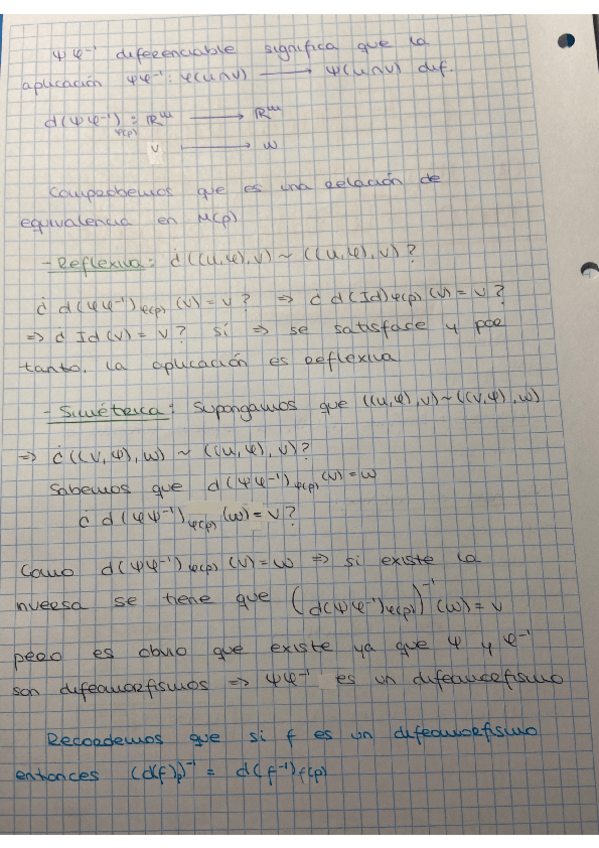 ψφ⁻¹ diferenciable significa que la
aplicación ψφ⁻¹: φ(U∩V) ⟶ ψ(U∩V) dif.
d(ψφ⁻¹)φ(p) : ℝᵐ ⟶ ℝᵐ
v ⟼ w
Comprobemos que es una relación de
equivalencia en M(p)
- Reflexiva: ¿((U,φ),v) ~ ((U,φ),v)?
¿ d(φφ⁻¹)φ(p) (v) = v ? ⇒ ¿ d(Id)φ(p) (v) = v ?
⇒ ¿ Id(v) = v? sí ⇒ se satisface y por
tanto, la aplicación es reflexiva
- Simétrica: Supongamos que ((U,φ),v) ~ ((V,ψ),w)
⇒ ¿((V,ψ),w) ~ ((U,φ),v)?
Sabemos que d(ψφ⁻¹)φ(p) (v) = w
¿ d(φψ⁻¹)ψ(p) (w) = v?
Como d(ψφ⁻¹)φ(p) (v) = w ⇒ si existe la
inversa se tiene que (d(ψφ⁻¹)φ(p))⁻¹ (w) = v
pero es obvio que existe ya que ψ y φ⁻¹
son difeomorfismos ⇒ ψφ⁻¹ es un difeomorfismo
Recordemos que si f es un difeomorfismo
entonces (d(f)p)⁻¹ = d(f⁻¹)f(p)